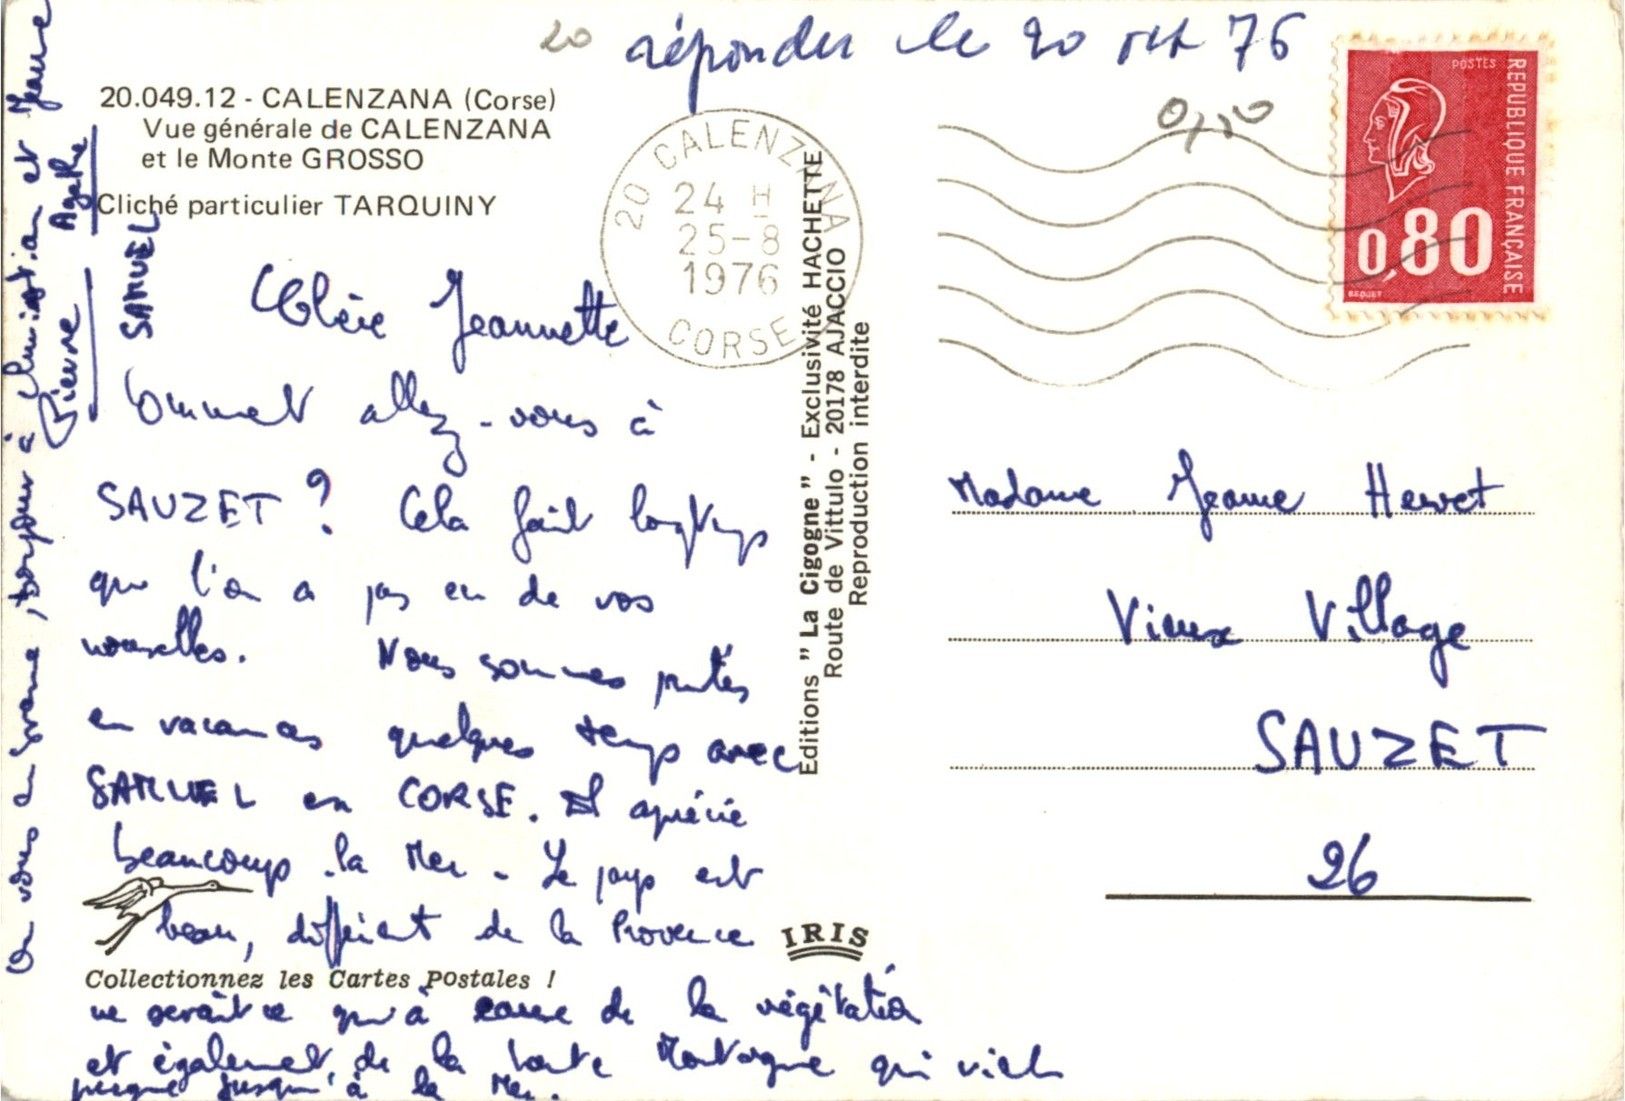 20 répondu le 20 oct 76
20.049.12 - CALENZANA (Corse)
Vue générale de CALENZANA
et le Monte GROSSO
Cliché particulier TARQUINY
20 CALENZANA
24 H
25-8
1976
CORSE
0,50
POSTES
REPUBLIQUE FRANÇAISE
0,80
BEQUET
Chère Jeannette
Comment allez-vous à
SAUZET ? Cela fait longtemps
que l'on a pas eu de vos
nouvelles. Nous sommes partis
en vacances quelques temps avec
SAMUEL en CORSE. Il aprécie
beaucoup la Mer. Le pays est
beau, différent de la Provence
ne serait ce qu'à cause de la végétation
et également de la haute Montagne qui vient
presque jusqu'à la Mer.
On vous embrasse, bonjour à Christian et Jeanne
Pierre Agathe
SAMUEL
Editions "La Cigogne" - Exclusivité HACHETTE
Route de Vittulo - 20178 AJACCIO
Reproduction interdite
Madame Jeanne Hervet
Vieux Village
SAUZET
26
IRIS
Collectionnez les Cartes Postales !